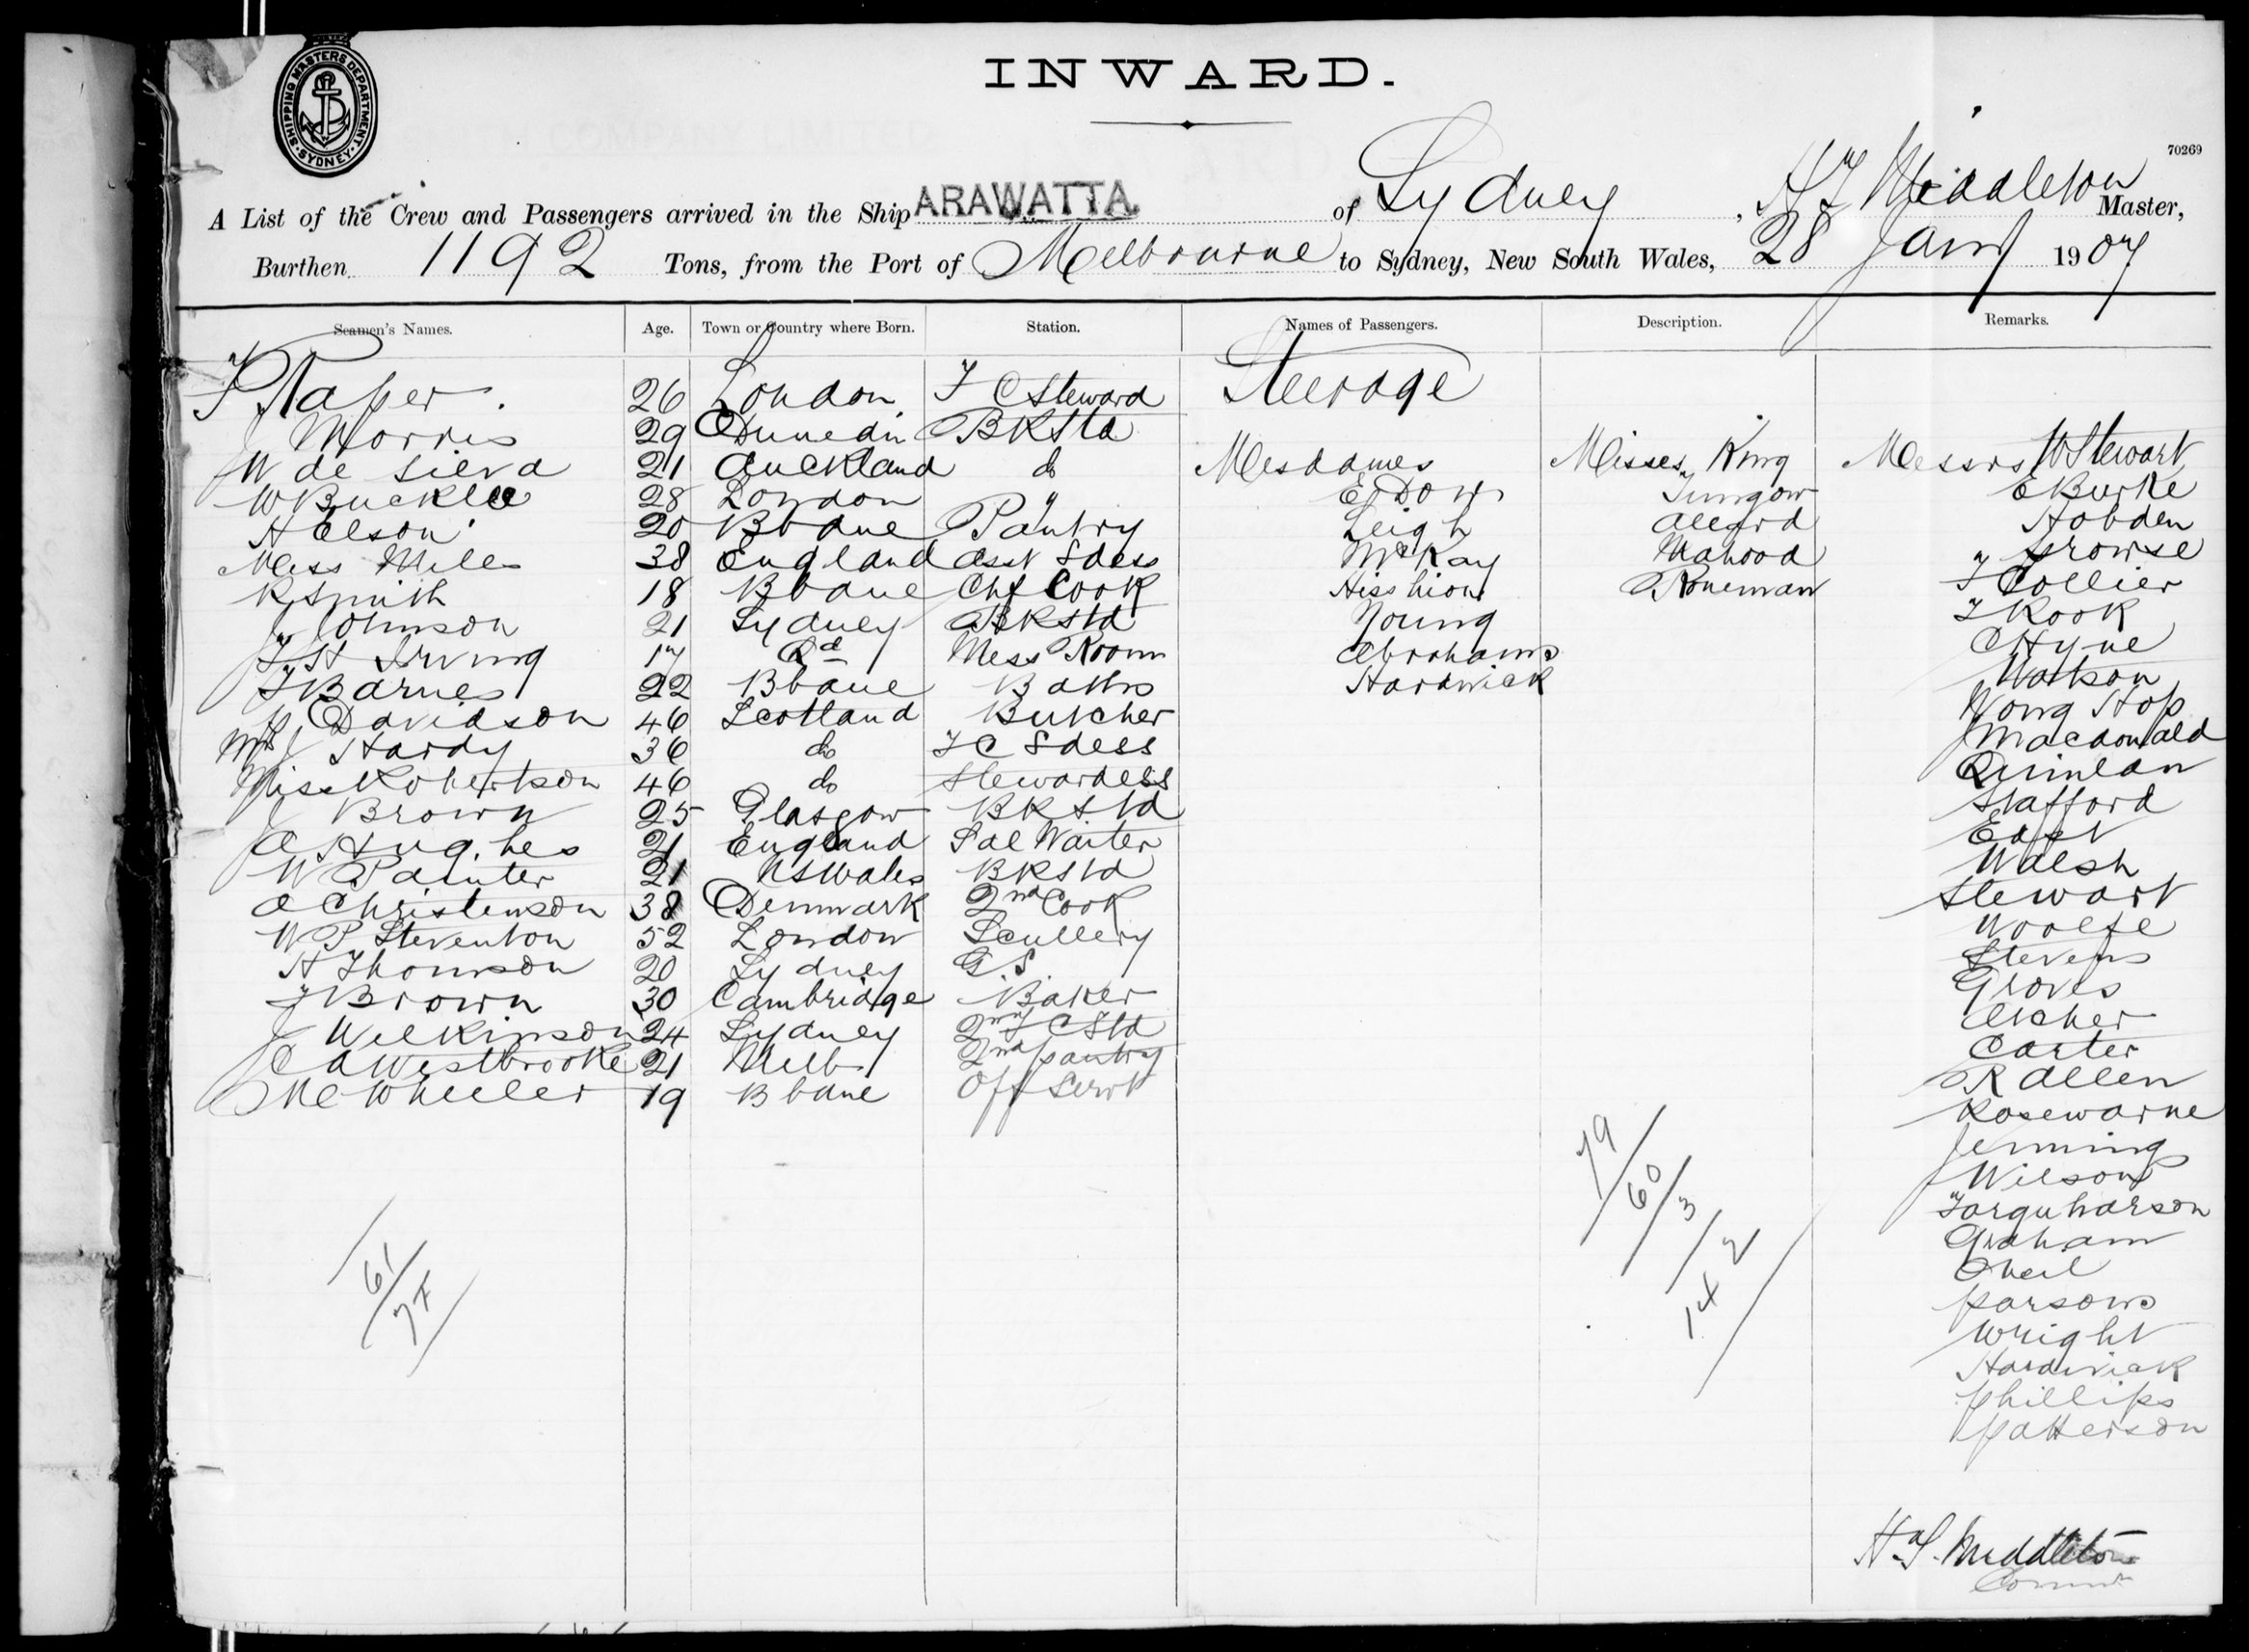 INWARD.
SHIPPING MASTERS DEPARTMENT. SYDNEY.
70269
A List of the Crew and Passengers arrived in the Ship ARAWATTA of Sydney, H Middleton Master,
Burthen 1192 Tons, from the Port of Melbourne to Sydney, New South Wales, 28 Jany 1907
Seamen's Names. Age. Town or Country where Born. Station. Names of Passengers. Description. Remarks.
Steerage
Raper. 26 London F C Steward
J Morris 29 Dunedin BKStd
W de Silva 21 Auckland do
W Buckle 28 London "
H Elson 20 Bbane Pantry
Miss Mile 38 England Asst Sdess
R Smith 18 Bbane Chf Cook
J Johnson 21 Sydney BKStd
H Irving 17 Qd Mess Room
F Barnes 22 Bbane Baths
Davidson 46 Scotland Butcher
Mrs J Hardy 36 do F C Sdess
Miss Robertson 46 do Stewardess
J Brown 25 Glasgow BKStd
A Hughes 21 England Sal Waiter
W Painter 21 NSWales BKStd
A Christenson 38 Denmark 2nd Cook
W P Steventon 52 London Scullery
H Thomson 20 Sydney G.S.
F Brown 30 Cambridge Baker
J Wilkinson 24 Sydney 2nd F C Std
C A Westbrooke 21 Melb 2nd pantry
Wheeler 19 Bbane Off Servt
Mesdames
Leigh
McKay
Young
Abrahams
Hardwick
Misses King
Mahood
Messrs W Stewart
E Burke
Hobden
Growse
F Collier
F Rook
C Hyne
Watson
Wong Hop
Macdonald
Quinlan
Stafford
East
Walsh
Stewart
Woolfe
Stevens
Groves
Archer
Carter
R Allen
Rosewarne
Jenning
Wilson
Farquharson
Graham
Oneil
Parsons
Wright
Hardwick
Phillips
Patterson
61/
79/
60/
3/
142/
H. Middleton